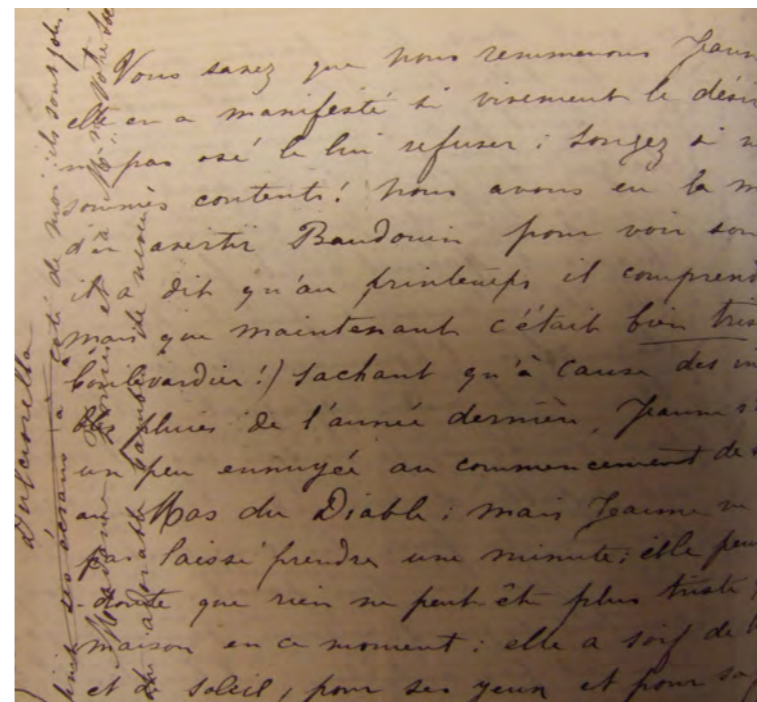 Vous savez que nous remmenons Jeanne
elle en a manifesté si vivement le désir
pas osé le lui refuser ; songez si
sommes contents ! nous avons eu la
d'en avertir Baudouin pour voir son
il a dit qu'au printemps il comprend
mais que maintenant c'était bien tris
boulevardier !) sachant qu'à cause des in
des pluies de l'année dernière, Jeanne s'
un peu ennuyée au commencement de
au Mas du Diable ; mais Jeanne ne
pas laissé prendre une minute ; elle
doute que rien ne peut être plus triste
maison en ce moment : elle a soif de
et de soleil, pour ses yeux et pour sa
Dulcinella
finit ses écrans à côté de moi ils sont jolis